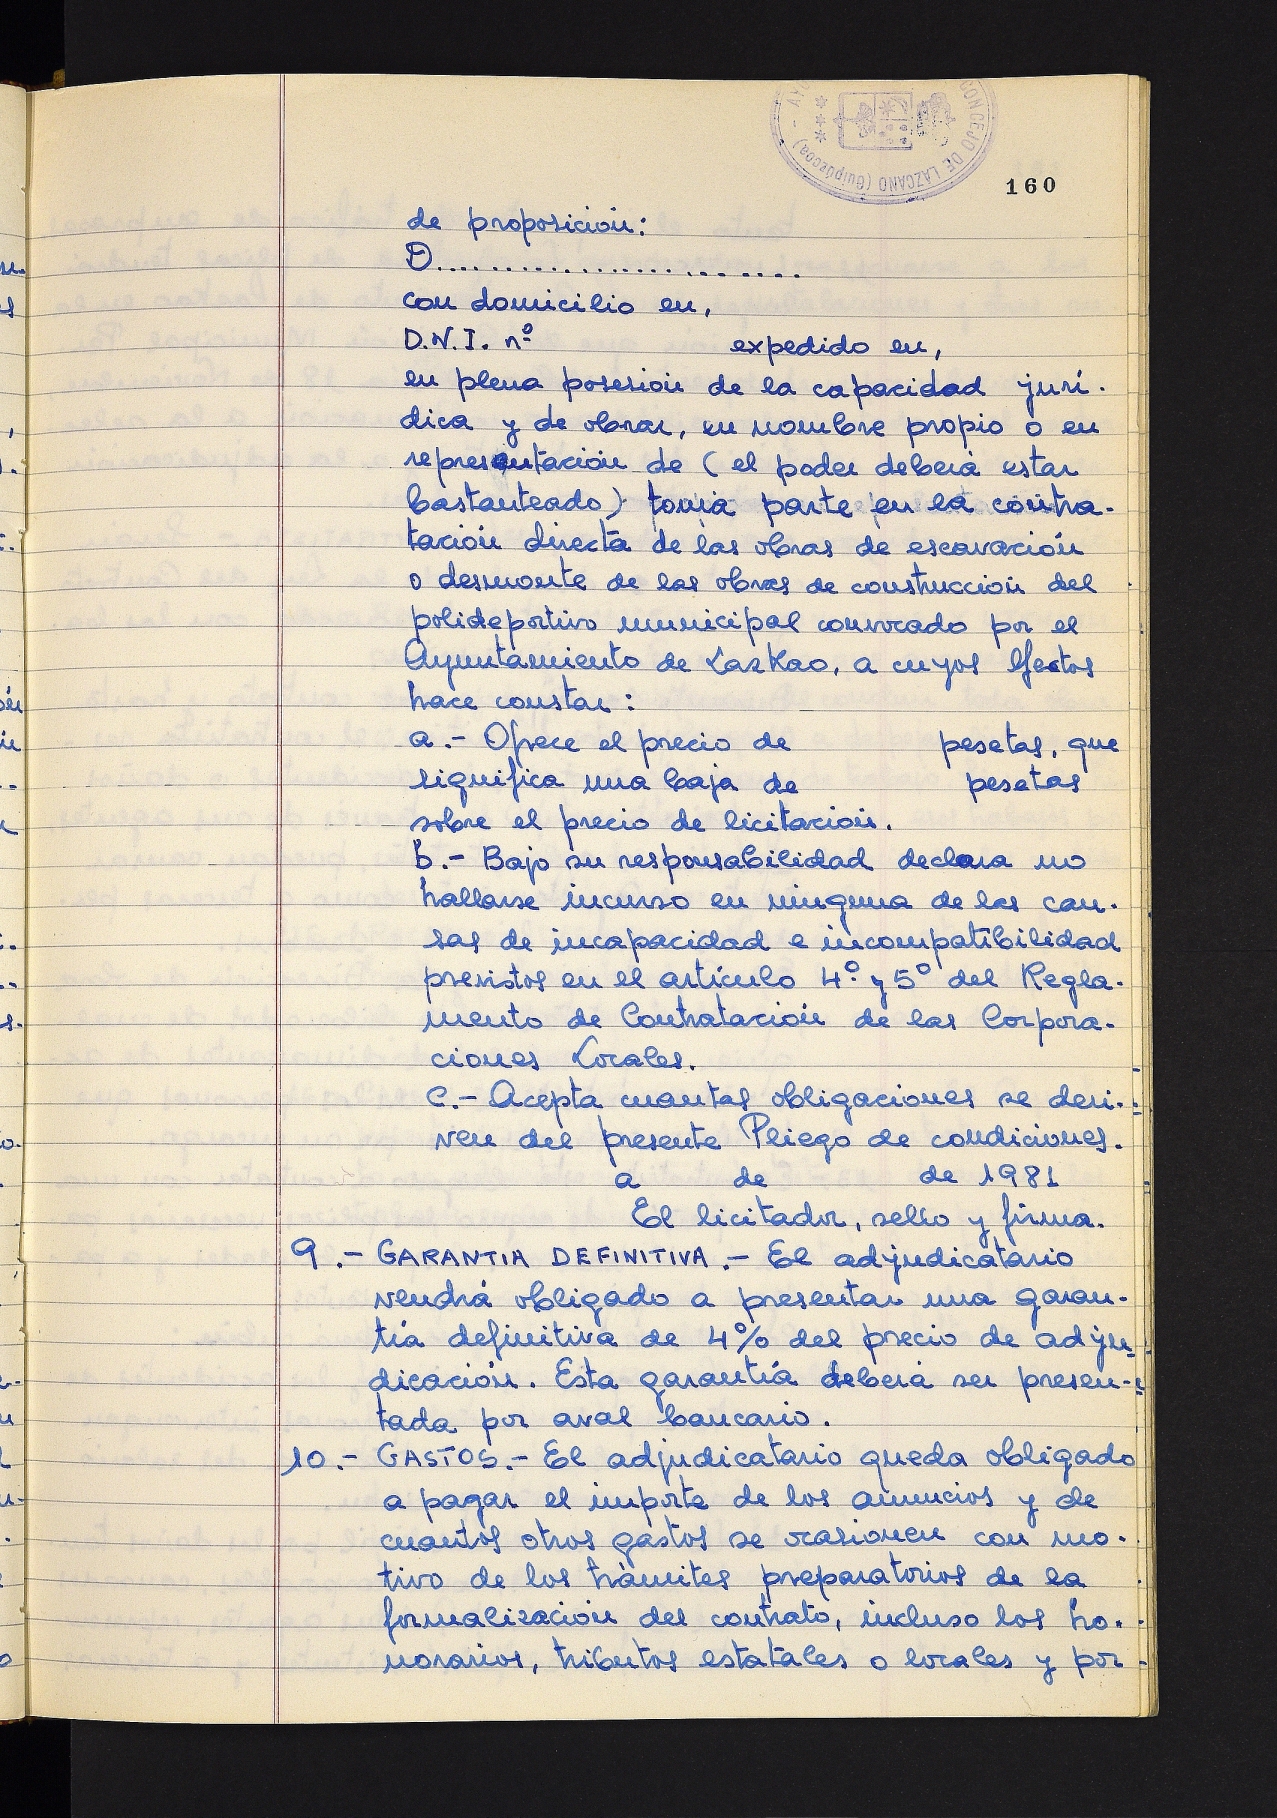 CONCEJO DE LAZCANO (Guipúzcoa)
160
de proposición:
D..........................
con domicilio en,
D.N.I. nº expedido en,
en plena posesión de la capacidad jurí-
dica y de obrar, en nombre propio o en
representación de (el poder deberá estar
bastanteado) toma parte en la contra-
tación directa de las obras de escavación
o desmonte de las obras de construcción del
polideportivo municipal convocado por el
Ayuntamiento de Lazkao, a cuyos efectos
hace constar:
a.- Ofrece el precio de pesetas, que
significa una baja de pesetas
sobre el precio de licitación.
b.- Bajo su responsabilidad declara no
hallarse incurso en ninguna de las cau-
sas de incapacidad e incompatibilidad
previstos en el artículo 4º y 5º del Regla-
mento de Contratación de las Corpora-
ciones Locales.
C.- Acepta cuantas obligaciones se deri-
ven del presente Pliego de condiciones.
a de de 1981
El licitador, sello y firma.
9.- GARANTIA DEFINITIVA.- El adjudicatario
vendrá obligado a presentar una garan-
tía definitiva de 4% del precio de adju-
dicación. Esta garantía deberá ser presen-
tada por aval bancario.
10.- GASTOS.- El adjudicatario queda obligado
a pagar el importe de los anuncios y de
cuantos otros gastos se ocasionen con mo-
tivo de los trámites preparatorios de la
formalización del contrato, incluso los ho-
norarios, tributos estatales o locales y por